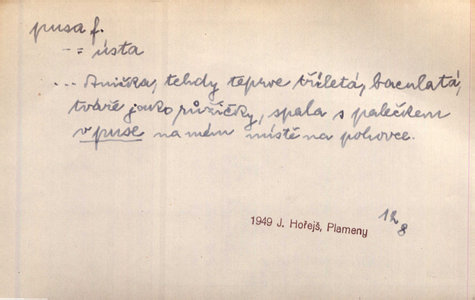 pusa f.
-= ústa
... Anička, tehdy teprve tříletá, baculatá,
tváře jako růžičky, spala s palečkem
v puse na mém místě na pohovce.
1949 J. Hořejš, Plameny
128